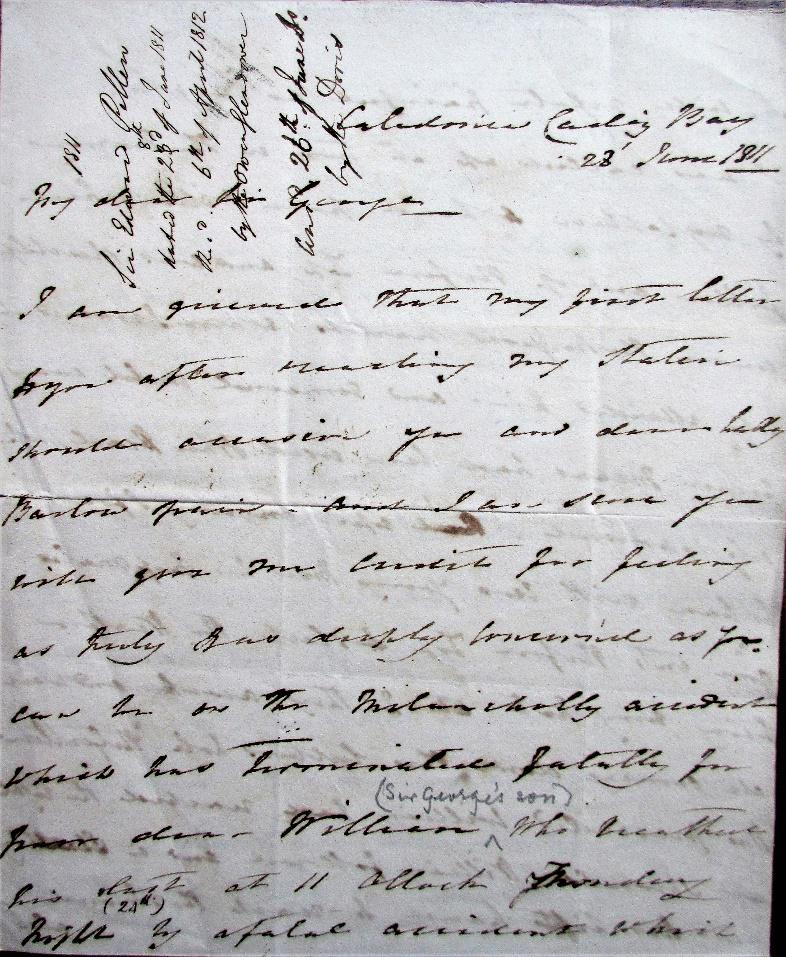 1811
Sir Edward Pellew
dated the 23rd 8th of June 1811
Rec.d 6th of April 1812
by the Owen Glendower
and 26th of June Do
by the Doris
Caledonia Cadiz Bay
28 June 1811
My dear Sir George
I am grieved that my first letter
to you after reaching my Station
should occasion you and dear Lady
Barlow pain - and I am sure you
will give me Credit for feeling
as truly & as deeply concerned as you
can be on the Melancholly accident
which has terminated fatally for
(Sir George's son)
poor dear William ^ who breathed
his last at 11 Oclock Thursday
(24th)
Night by a fatal accident which